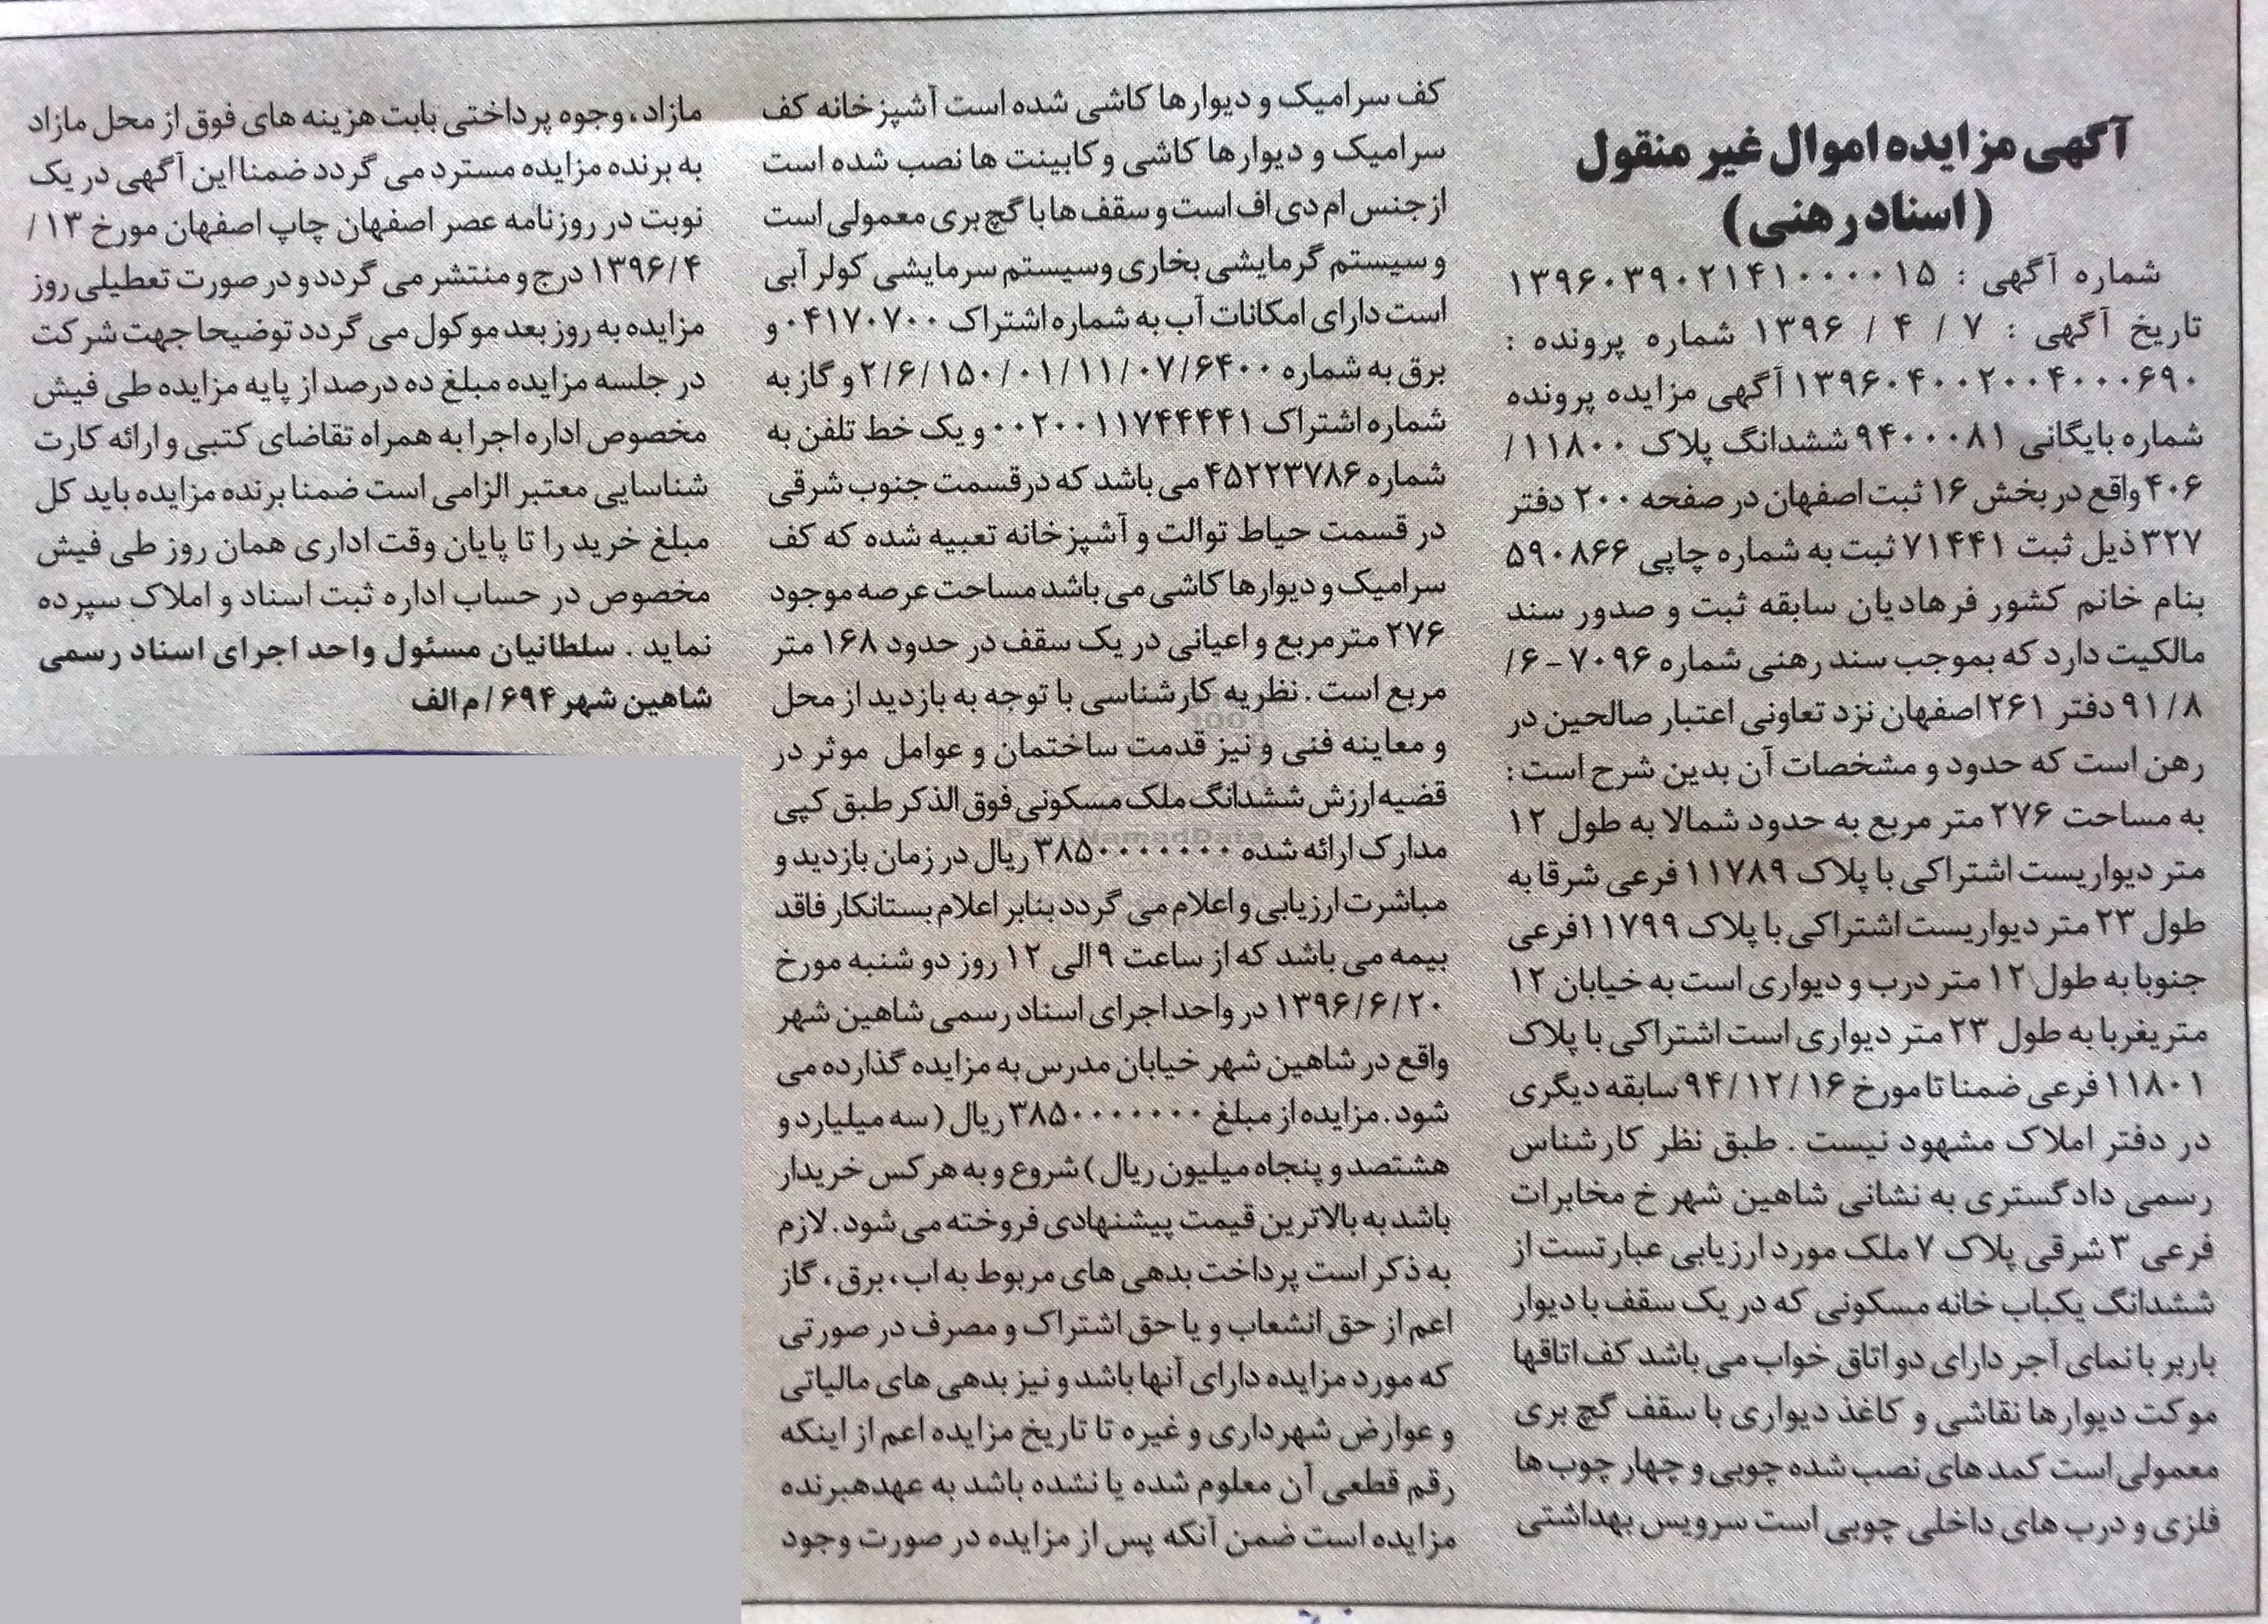 آگهی مزایده اموال غیر منقول
(اسناد رهنی)
شماره آگهی : ۱۳۹۶۰۳۹۰۲۱۴۱۰۰۰۰۱۵
تاریخ آگهی : ۷ / ۴ / ۱۳۹۶ شماره پرونده :
۱۳۹۶۰۴۰۰۲۰۰۴۰۰۰۶۹۰ آگهی مزایده پرونده
شماره بایگانی ۹۴۰۰۰۸۱ ششدانگ پلاک ۱۱۸۰۰/
۴۰۶ واقع در بخش ۱۶ ثبت اصفهان در صفحه ۲۰۰ دفتر
۳۲۷ ذیل ثبت ۷۱۴۴۱ ثبت به شماره چاپی ۵۹۰۸۶۶
بنام خانم کشور فرهادیان سابقه ثبت و صدور سند
مالکیت دارد که بموجب سند رهنی شماره ۷۰۹۶-۶/
۹۱/۸ دفتر ۲۶۱ اصفهان نزد تعاونی اعتبار صالحین در
رهن است که حدود و مشخصات آن بدین شرح است:
به مساحت ۲۷۶ متر مربع به حدود شمالا به طول ۱۲
متر دیواریست اشتراکی با پلاک ۱۱۷۸۹ فرعی شرقا به
طول ۲۳ متر دیواریست اشتراکی با پلاک ۱۱۷۹۹ فرعی
جنوبا به طول ۱۲ متر درب و دیواری است به خیابان ۱۲
متریغربا به طول ۲۳ متر دیواری است اشتراکی با پلاک
۱۱۸۰۱ فرعی ضمنا تا مورخ ۹۴/۱۲/۱۶ سابقه دیگری
در دفتر املاک مشهود نیست . طبق نظر کارشناس
رسمی دادگستری به نشانی شاهین شهر خ مخابرات
فرعی ۳ شرقی پلاک ۷ ملک مورد ارزیابی عبارتست از
ششدانگ یکباب خانه مسکونی که در یک سقف با دیوار
باربر با نمای آجر دارای دو اتاق خواب می باشد کف اتاقها
موکت دیوارها نقاشی و کاغذ دیواری با سقف گچ بری
معمولی است کمدهای نصب شده چوبی و چهار چوب ها
فلزی و درب های داخلی چوبی است سرویس بهداشتی
کف سرامیک و دیوارها کاشی شده است آشپزخانه کف
سرامیک و دیوارها کاشی و کابینت ها نصب شده است
از جنس ام دی اف است و سقف ها با گچ بری معمولی است
و سیستم گرمایشی بخاری وسیستم سرمایشی کولر آبی
است دارای امکانات آب به شماره اشتراک ۰۴۱۷۰۷۰۰ و
برق به شماره ۲/۶/۱۵۰/۰۱/۱۱/۰۷/۶۴۰۰ و گاز به
شماره اشتراک ۰۰۲۰۰۱۱۷۴۴۴۴۱ و یک خط تلفن به
شماره ۴۵۲۲۳۷۸۶ می باشد که در قسمت جنوب شرقی
در قسمت حیاط توالت و آشپزخانه تعبیه شده که کف
سرامیک و دیوارها کاشی می باشد مساحت عرصه موجود
۲۷۶ مترمربع و اعیانی در یک سقف در حدود ۱۶۸ متر
مربع است . نظریه کارشناسی با توجه به بازدید از محل
و معاینه فنی و نیز قدمت ساختمان و عوامل موثر در
قضیه ارزش ششدانگ ملک مسکونی فوق الذکر طبق کپی
مدارک ارائه شده ۳۸۵۰۰۰۰۰۰۰ ریال در زمان بازدید و
مباشرت ارزیابی و اعلام می گردد بنابر اعلام بستانکار فاقد
بیمه می باشد که از ساعت ۹ الی ۱۲ روز دو شنبه مورخ
۱۳۹۶/۶/۲۰ در واحد اجرای اسناد رسمی شاهین شهر
واقع در شاهین شهر خیابان مدرس به مزایده گذارده می
شود . مزایده از مبلغ ۳۸۵۰۰۰۰۰۰۰ ریال ( سه میلیارد و
هشتصد و پنجاه میلیون ریال ) شروع و به هر کس خریدار
باشد به بالاترین قیمت پیشنهادی فروخته می شود . لازم
به ذکر است پرداخت بدهی های مربوط به اب ، برق ، گاز
اعم از حق انشعاب و یا حق اشتراک و مصرف در صورتی
که مورد مزایده دارای آنها باشد و نیز بدهی های مالیاتی
و عوارض شهرداری و غیره تا تاریخ مزایده اعم از اینکه
رقم قطعی آن معلوم شده یا نشده باشد به عهدهبرنده
مزایده است ضمن آنکه پس از مزایده در صورت وجود
مازاد ، وجوه پرداختی بابت هزینه های فوق از محل مازاد
به برنده مزایده مسترد می گردد ضمنا این آگهی در یک
نوبت در روزنامه عصر اصفهان چاپ اصفهان مورخ ۱۳/
۱۳۹۶/۴ درج و منتشر می گردد و در صورت تعطیلی روز
مزایده به روز بعد موکول می گردد توضیحا جهت شرکت
در جلسه مزایده مبلغ ده درصد از پایه مزایده طی فیش
مخصوص اداره اجرا به همراه تقاضای کتبی و ارائه کارت
شناسایی معتبر الزامی است ضمنا برنده مزایده باید کل
مبلغ خرید را تا پایان وقت اداری همان روز طی فیش
مخصوص در حساب اداره ثبت اسناد و املاک سپرده
نماید . سلطانیان مسئول واحد اجرای اسناد رسمی
شاهین شهر ۶۹۴/ م الف
ParsNamadData